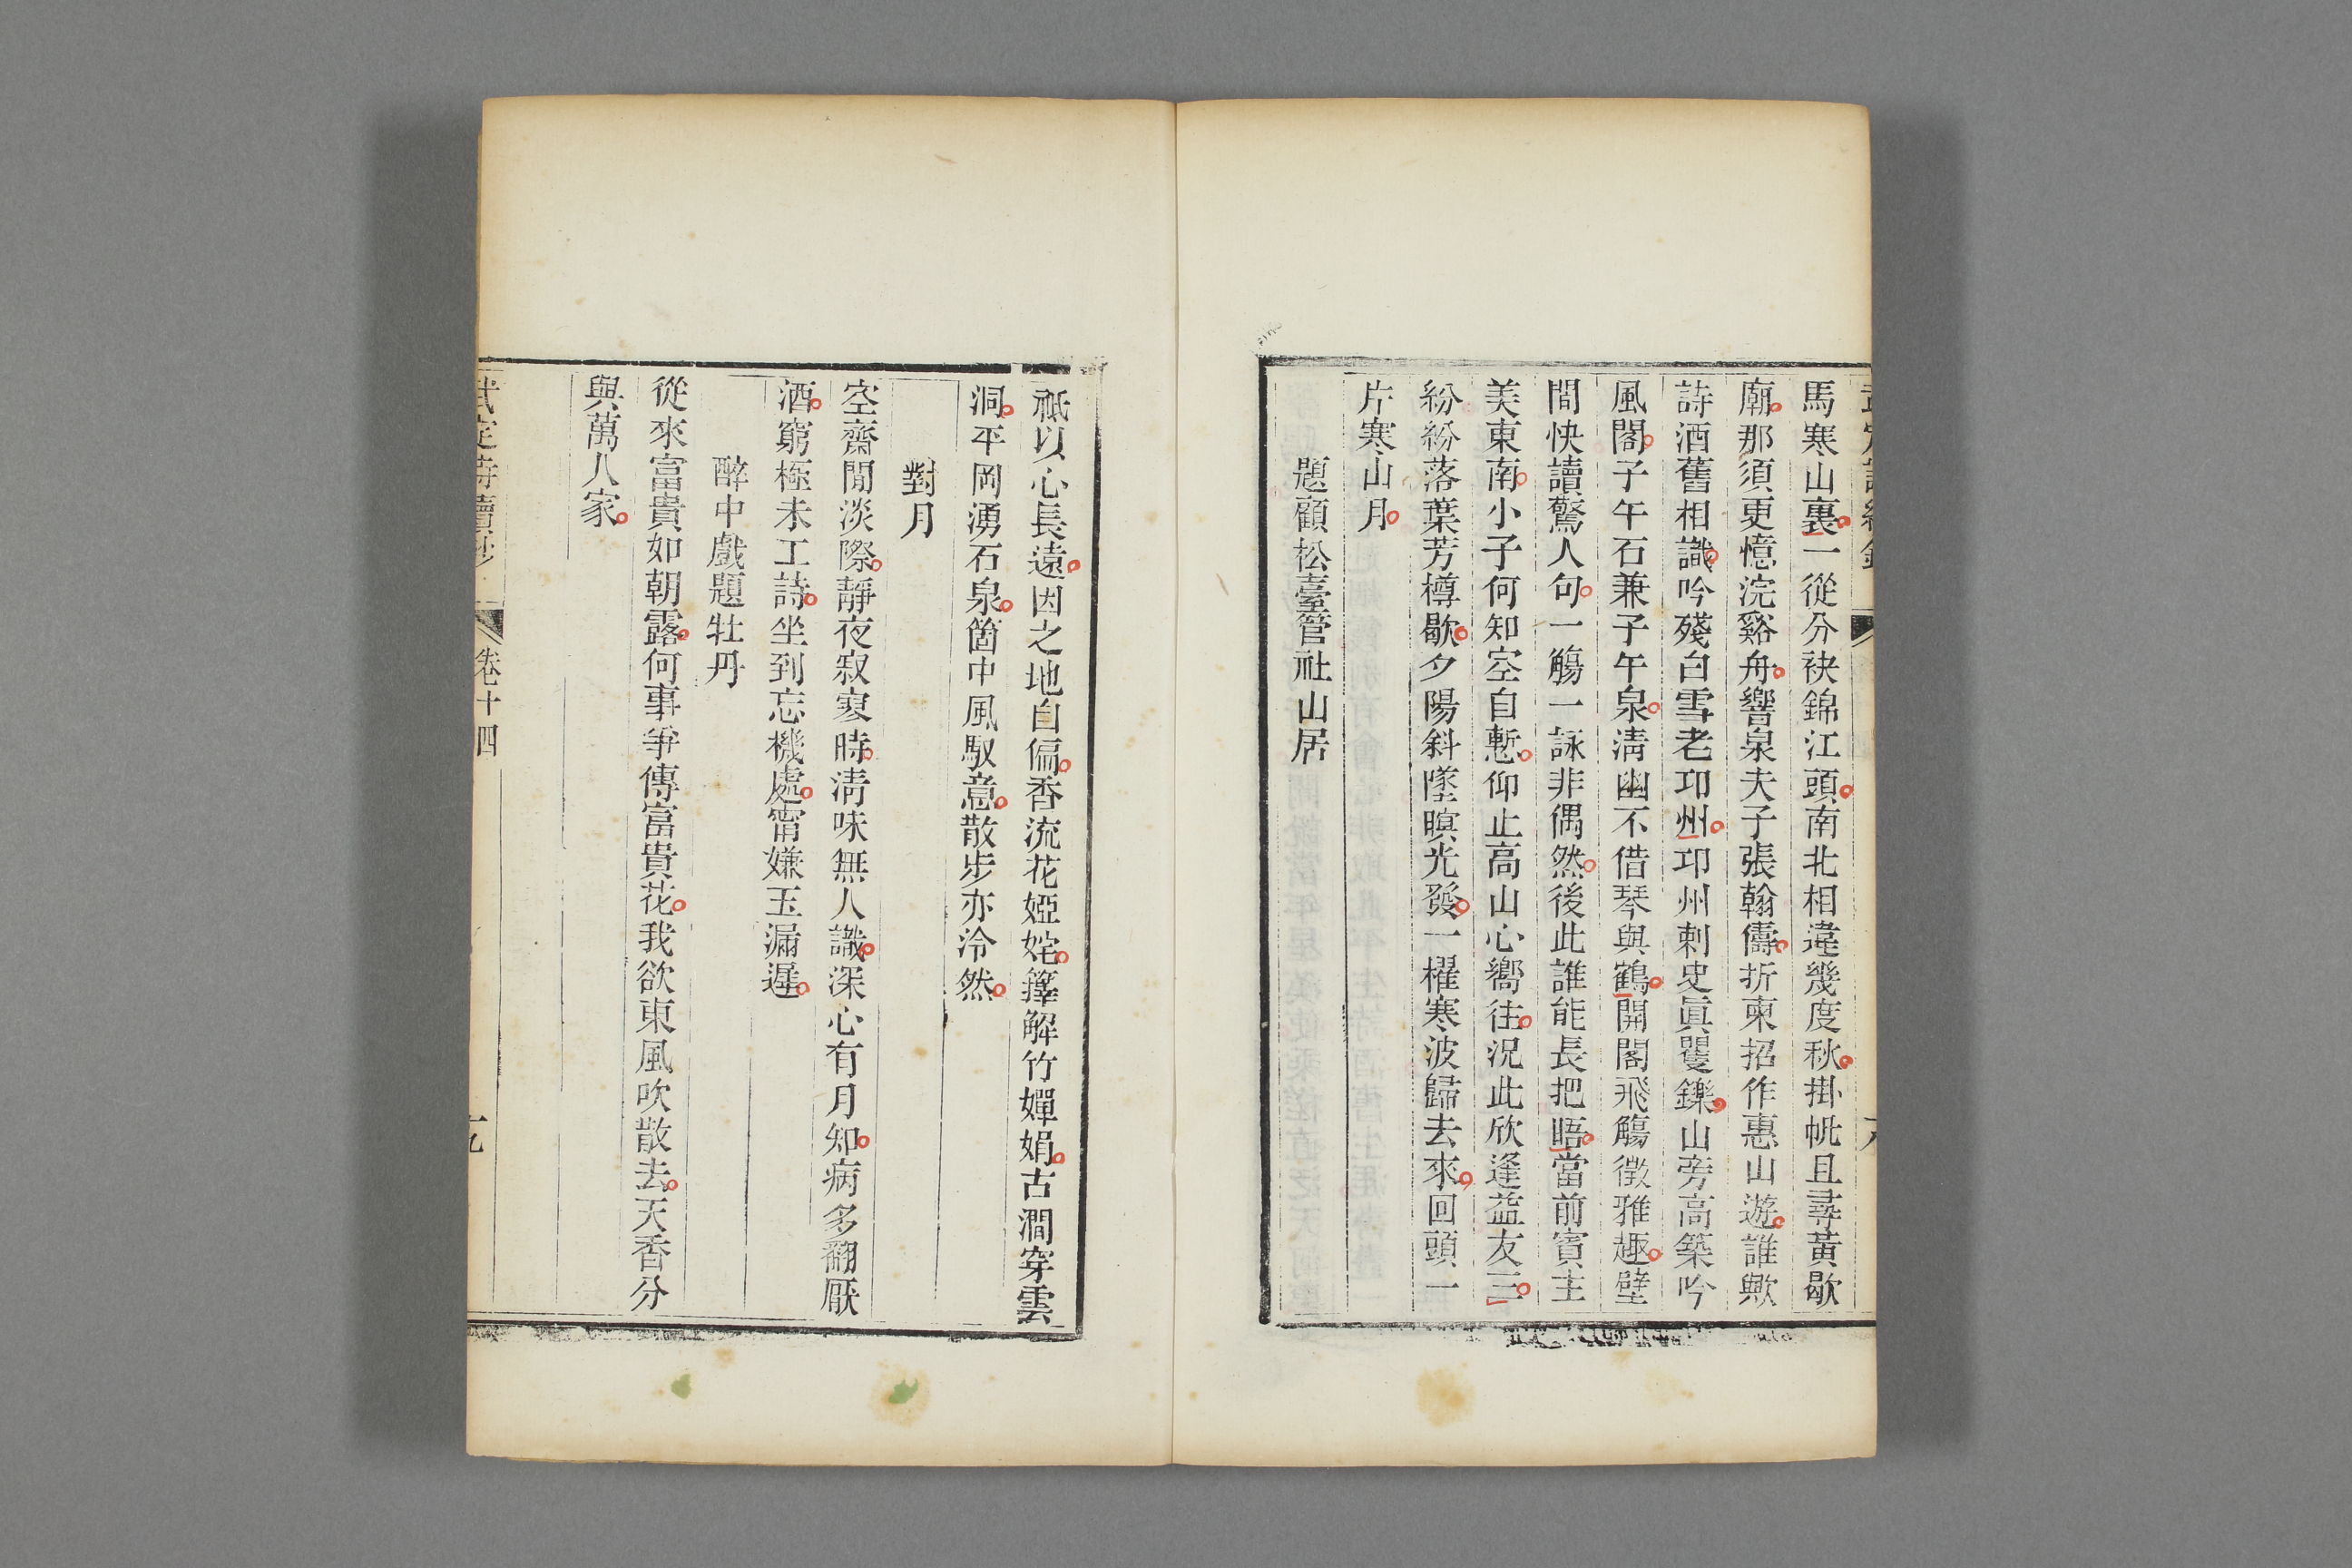 馬寒山裏一從分袂錦江頭南北相違幾度秋掛帆且尋黃歇
廟那須更憶浣谿舟響泉夫子張翰儔折柬招作惠山遊誰歟
詩酒舊相識吟殘白雪老邛州邛州刺史眞矍鑠山旁高築吟
風閣子午石兼子午泉淸幽不借琴與鶴開閣飛觴徵雅趣壁
間快讀驚人句一觴一詠非偶然後此誰能長把晤當前賓主
美東南小子何知空自慙仰止高山心嚮往況此欣逢益友三
紛紛落葉芳樽歇夕陽斜墜暝光發一櫂寒波歸去來回頭一
片寒山月
題顧松臺管社山居
祗以心長遠因之地自偏香流花婭姹籜解竹嬋娟古澗穿雲
洞平岡湧石泉箇中風馭意散步亦泠然
對月
空齋閒淡際靜夜寂寥時淸味無人識深心有月知病多翻厭
酒窮極未工詩坐到忘機處甯嫌玉漏遲
醉中戲題牡丹
從來富貴如朝露何事爭傳富貴花我欲東風吹散去天香分
與萬人家
卷十四